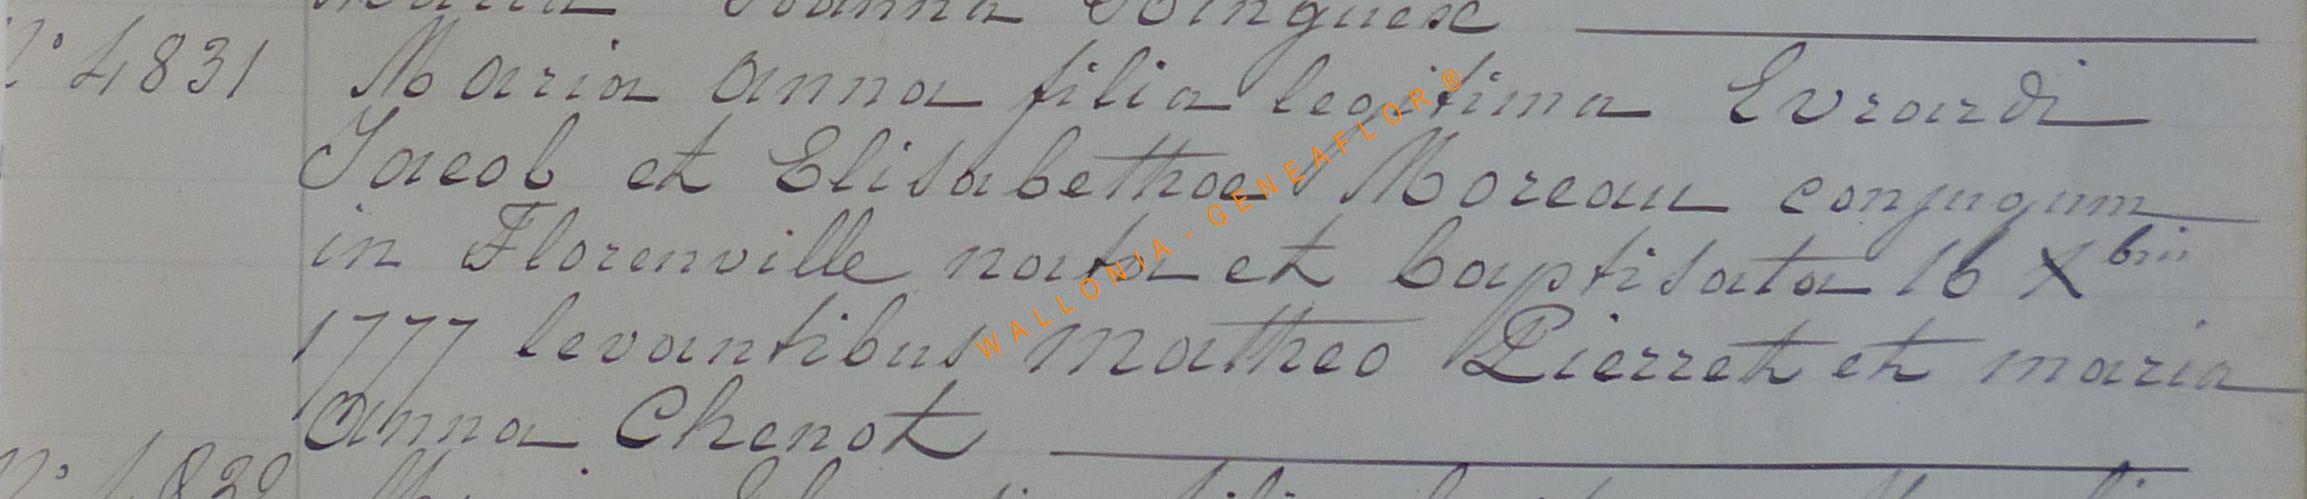 Maria Joanna
N° 4831 Maria Anna filia legitima Evrardi
Jacob et Elisabethae Moreau conjugum
in Florenville nata et baptisata 16 Xbris
1777 levantibus Matheo Pierret et maria
Anna Chenot
N° 4832
WALLONIA - GENEAFLOR®